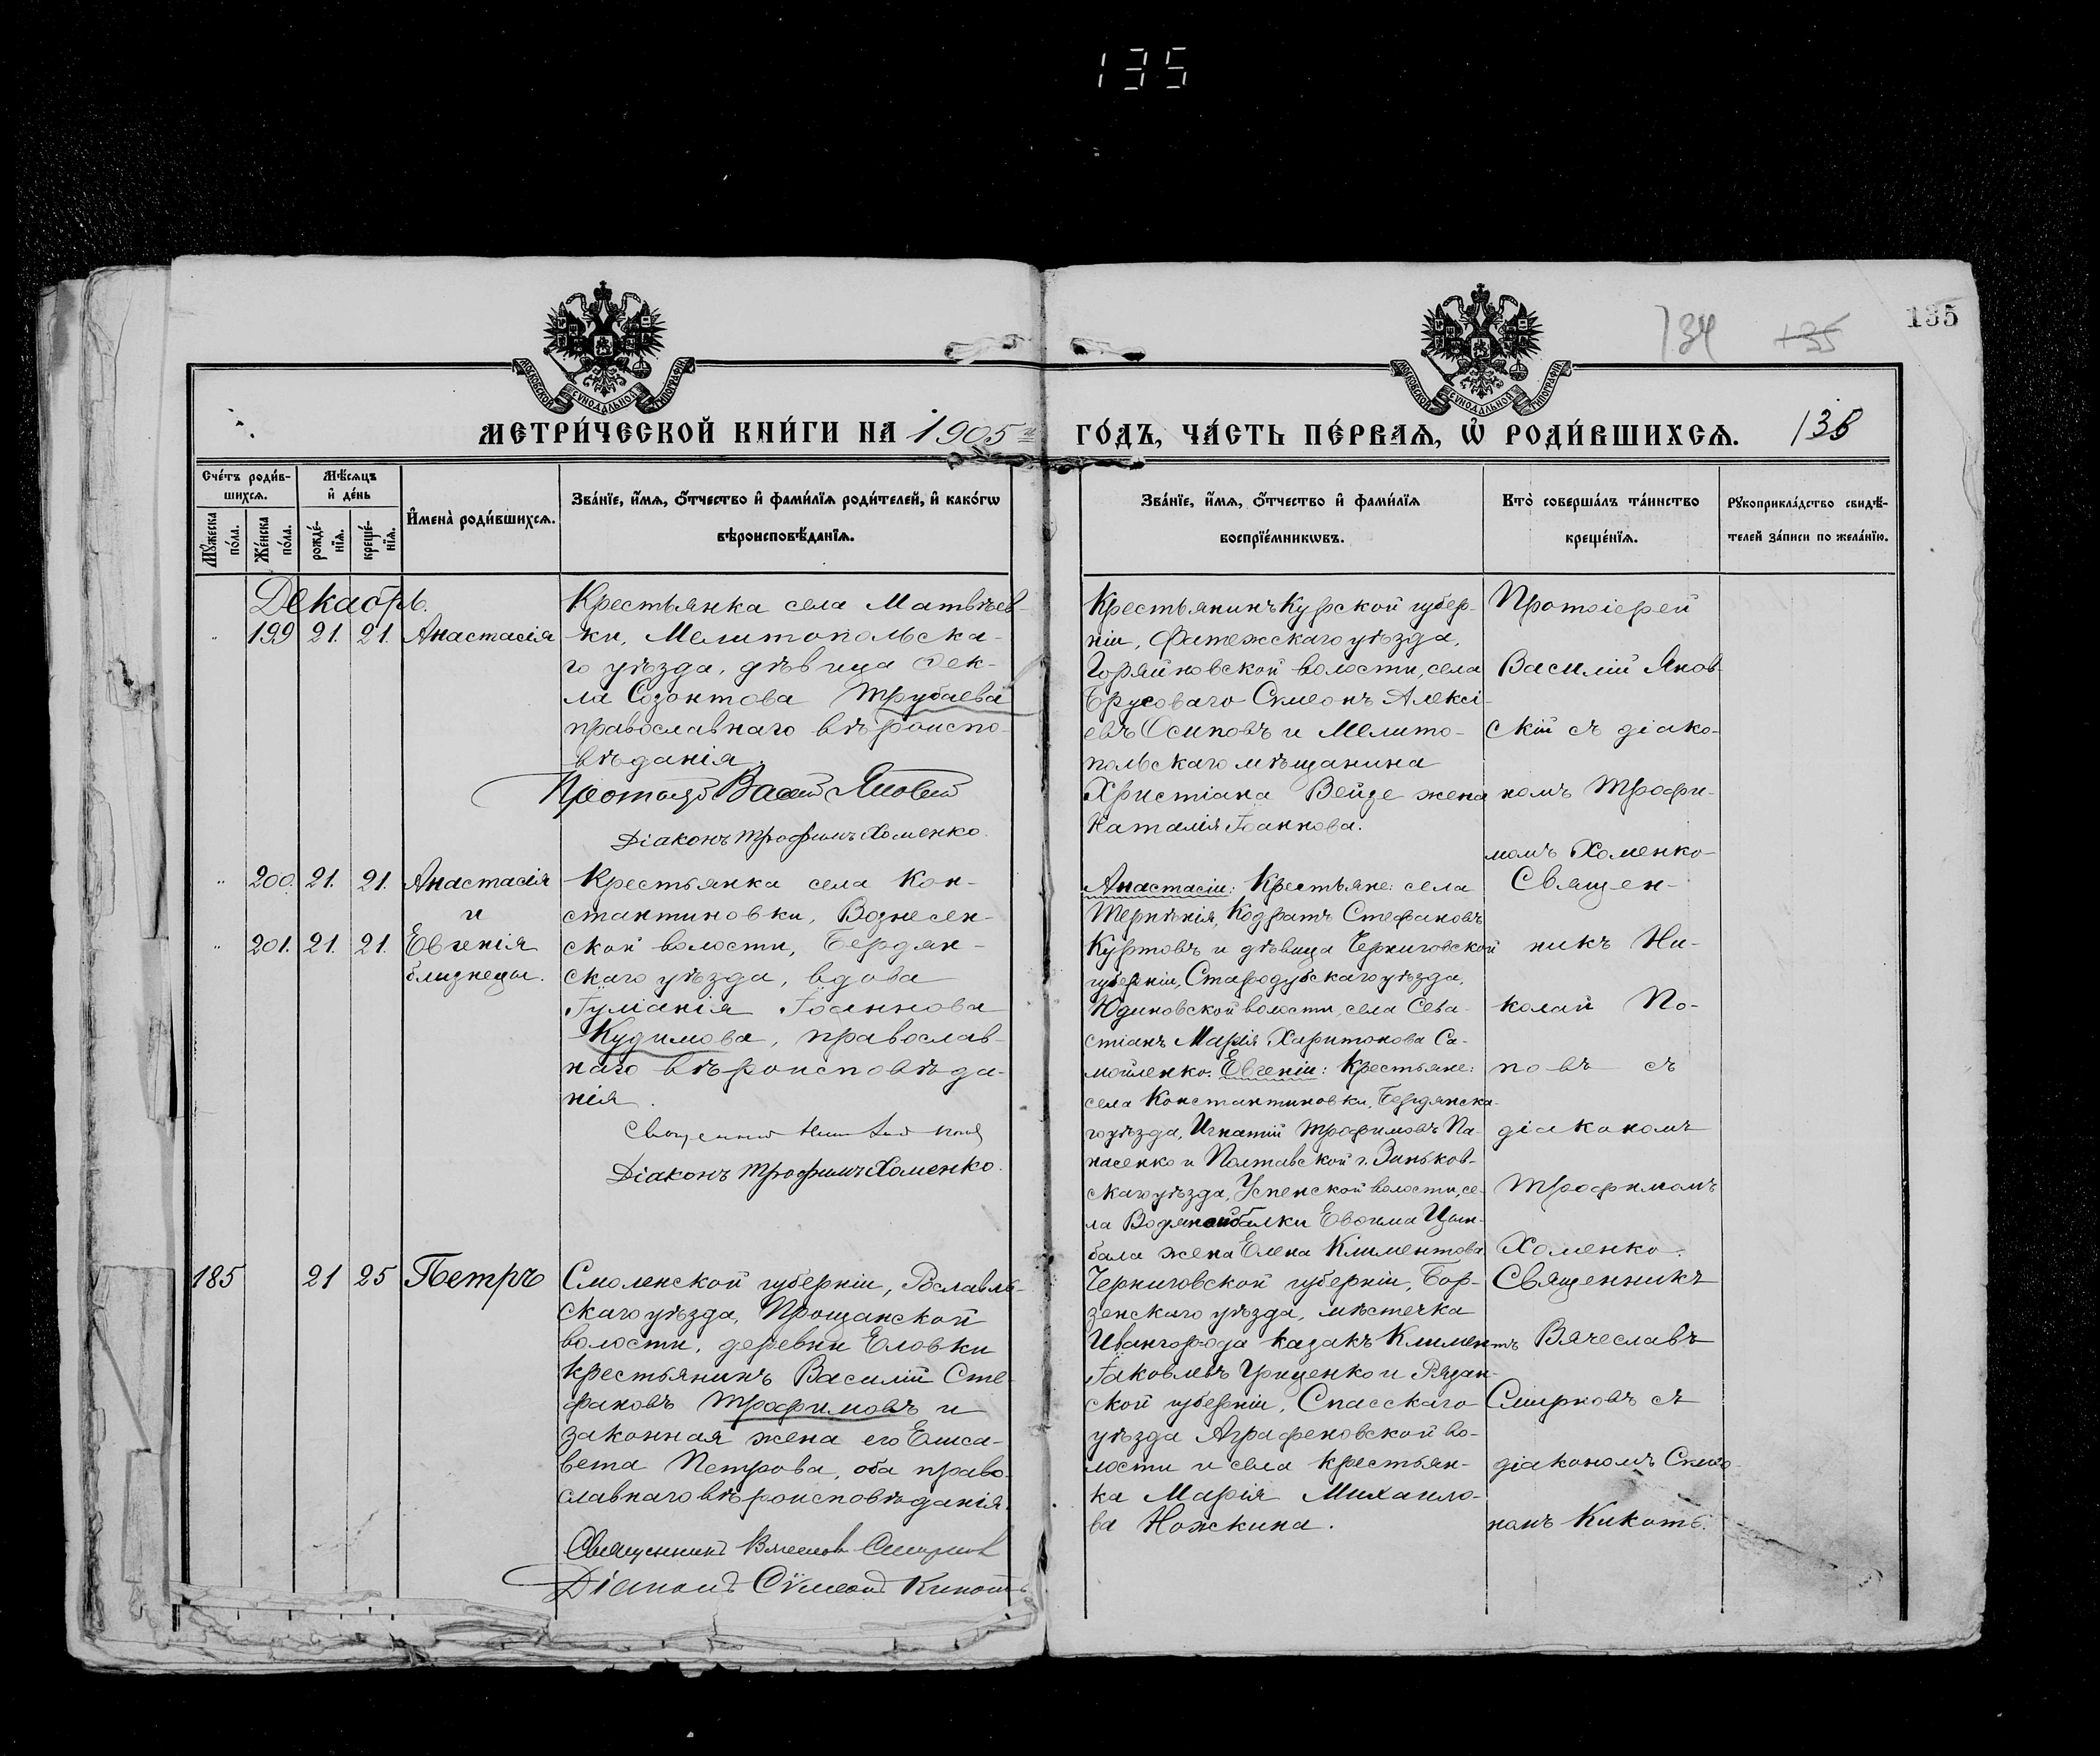 135
134 135
135
МЕТРИ́ЧЕСКОЙ КНИ́ГИ НА 1905й ГО́ДЪ, ЧА́СТЬ ПЕ́РВАѦ, Ѡ҆ РОДИ́ВШИХСѦ. 135
Сче́тъ роди́в-
шихсѧ.
Мꙋ́жеска по́ла.
Же́нска по́ла.
Мѣ́сѧцъ
и҆ де́нь
рожде́-
нїѧ.
креще́-
нїѧ.
И҆мена̀ роди́вшихсѧ.
Зва́нїе, и҆́мѧ, ѻ҆́тчество и҆ фами́лїѧ роди́телей, и҆ како́гѡ
вѣроисповѣ́данїѧ.
Зва́нїе, и҆́мѧ, ѻ҆́тчество и҆ фами́лїѧ
воспрїе́мникѡвъ.
Кто̀ соверша́лъ та́инство
креще́нїѧ.
Рꙋкоприкла́дство свидѣ́-
телей за́писи по жела́нїю.
Декабрь.
199 21. 21. Анастасія
Крестьянка села Матвѣев-
ки, Мелитопольска-
го уѣзда, дѣвица Ѳек-
ла Созонтова Трубаева
православнаго вѣроиспо-
вѣданія.
Діаконъ Трофимъ Хоменко.
Крестьянинъ Курской губер-
ніи, Фатежскаго уѣзда,
Горяйновской волости, села
Брусоваго Симеонъ Алексі-
евъ Осиповъ и Мелито-
польскаго мѣщанина
Христіана Вейде жена
Наталія Іоаннова.
Протоіерей
Василій Янов-
скій съ діако-
номъ Трофи-
момъ Хоменко
200. 21. 21. Анастасія
и
201. 21. 21. Евгенія
близнецы.
Крестьянка села Кон-
стантиновки, Вознесен-
ской волости, Бердян-
скаго уѣзда, вдова
Іуліанія Іоаннова
Кудимова, православ-
наго вѣроисповѣда-
нія.
Діаконъ Трофимъ Хоменко.
Анастасіи: Крестьяне: села
Терпѣнія, Кодратъ Стефановъ
Куртовъ и дѣвица Черниговской
губерніи, Стародубскаго уѣзда,
Юдиновской волости, села Сева-
стіанъ Марія Харитонова Са-
мойленко. Евгеніи: Крестьяне:
села Константиновки, Бердянска-
го уѣзда, Игнатій Трофимовъ Па-
насенко и Полтавской г. Зиньков-
скаго уѣзда, Успенской волости, се-
ла Водянойбалки Евѳима Цым-
бала жена Елена Климентова
Священ-
никъ Ни-
колай По-
повъ съ
діакономъ
Трофимомъ
Хоменко.
185 21 25 Петръ
Смоленской губерніи, Рославль-
скаго уѣзда, Прощанской
волости, деревни Еловки
крестьянинъ Василій Сте-
фановъ Трофимовъ и
законная жена его Елиса-
вета Петрова, оба право-
славнаго вѣроисповѣданія.
Священникъ Вячеславъ Смирновъ
Діаконъ Сѵмеонъ Кикоть
Черниговской губерніи, Бор-
зенскаго уѣзда, мѣстечка
Ивангорода казакъ Климентъ
Іаковлевъ Гриценко и Рязан-
ской губерніи, Спасскаго
уѣзда Аграфеновской во-
лости и села крестьян-
ка Марія Михаило-
ва Ножкина.
Священникъ
Вячеславъ
Смирновъ съ
діакономъ Симео-
номъ Кикоть.